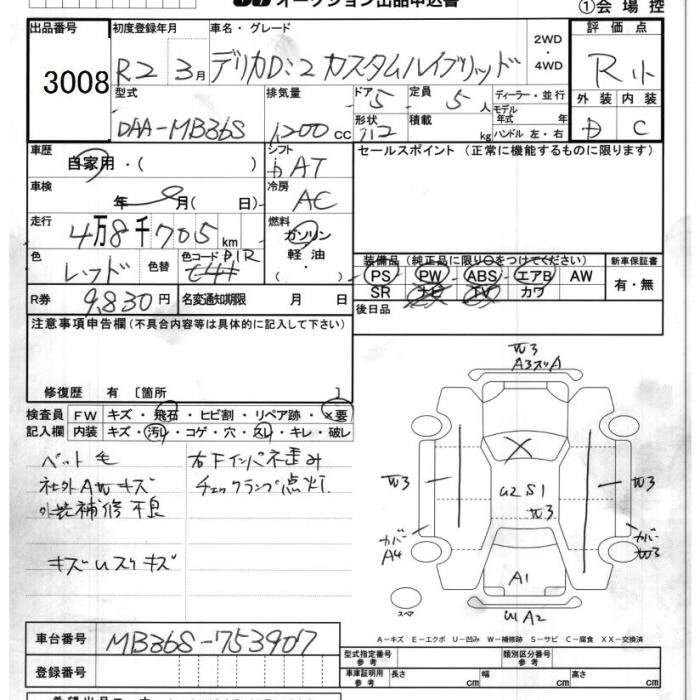 オークション出品申込書
①会場控
出品番号 初度登録年月 車名・グレード 2WD ・ 4WD 評価点
3008 R2 3月 デリカD:2 カスタムハイブリッド R
型式 排気量 ドア 定員 ディーラー・並行 外装 内装
DAA-MB36S 1,200cc 5 5人 モデル年式 年 D C
形状 積載 kg ハンドル 左・右
車歴 シフト セールスポイント (正常に機能するものに限ります)
自家用・( ) AT
車検 冷房
年 月( 日) AC
走行 燃料
4万8千705km ガソリン
色 色替 色コード 軽油
レッド ・( )
装備品 (純正品に限り○をつけてください) 新車保証書
PS PW ABS エアB AW 有・無
SR ナビ TV カワ
R券 9,830円 名変通知期限 月 日
後日品
注意事項申告欄(不具合内容等は具体的に記入して下さい)
修復歴 有 [箇所 ]
検査員 FW キズ・飛石・ヒビ割・リペア跡・×要
記入欄 内装 キズ・汚れ・コゲ・穴・スレ・キレ・破レ
ペット毛 右Fインパネ歪み
社外AWキズ チェックランプ点灯
外装補修不良
キズUスリキズ
W3
A3スリA
W3 W3
U2 S1
W3
カバー A4
カバー W3
A1
スペア
U1 A2
A-キズ E-エクボ U-凹み W-補修跡 S-サビ C-腐食 XX-交換済
車台番号 MB36S-753907
型式指定番号 参考 類別区分番号 参考
登録番号
車庫証明用 参考 長さ cm 幅 cm 高さ cm